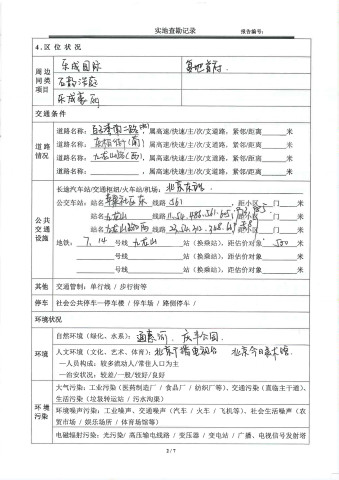 实地查勘记录 报告编号：
4.区位状况
周边同类项目 乐成国际
石韵浩庭
乐成豪丽
交通条件
道路情况 道路名称： ，属高速/快速/主/次/支道路，紧邻/距离 米
道路名称： ，属高速/快速/主/次/支道路，紧邻/距离 米
道路名称：九龙山路(西)，属高速/快速/主/次/支道路，紧邻/距离 米
公共交通设施 长途汽车站/交通枢纽/火车站/机场：北京东站
公交车站：站名 线路 561 ，距小区 门 米
站名 九龙山 线路 ，距小区 门 米
站名 九龙山 线路 ，距小区 门 米
地铁：7、14 号线 九龙山 站（换乘站），距估价对象 500 米
号线 站（换乘站），距估价对象 米
号线 站（换乘站），距估价对象 米
其他 交通管制：单行线 / 步行街等
停车 社会公共停车—停车楼 / 停车场 / 路侧停车 /
环境状况
环境 自然环境（绿化、水系）：通惠河、庆丰公园
人文环境（文化、艺术、体育）：北京广播电视台 北京今日美术馆
—人员构成：较多流动人/常住人口为主
—治安状况：较差/一般/较好/良好
环境污染 大气污染：工业污染（医药制造厂 / 食品厂 / 纺织厂等）、交通污染（直临主干道）、
生活污染（垃圾转运站 / 污水沟渠）
环境噪声污染：工业噪声、交通噪声（汽车 / 火车 / 飞机等）、社会生活噪声（农
贸市场 / 娱乐场所 / 体育场馆等）
电磁辐射污染：光污染/ 高压输电线路 / 变压器 / 变电站 / 广播、电视信号发射塔
2 / 7